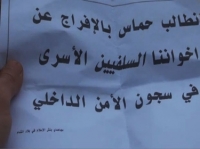 نطالب حماس بالإفراج عن
اخواننا السلفيين الأسرى
في سجون الأمن الداخلي